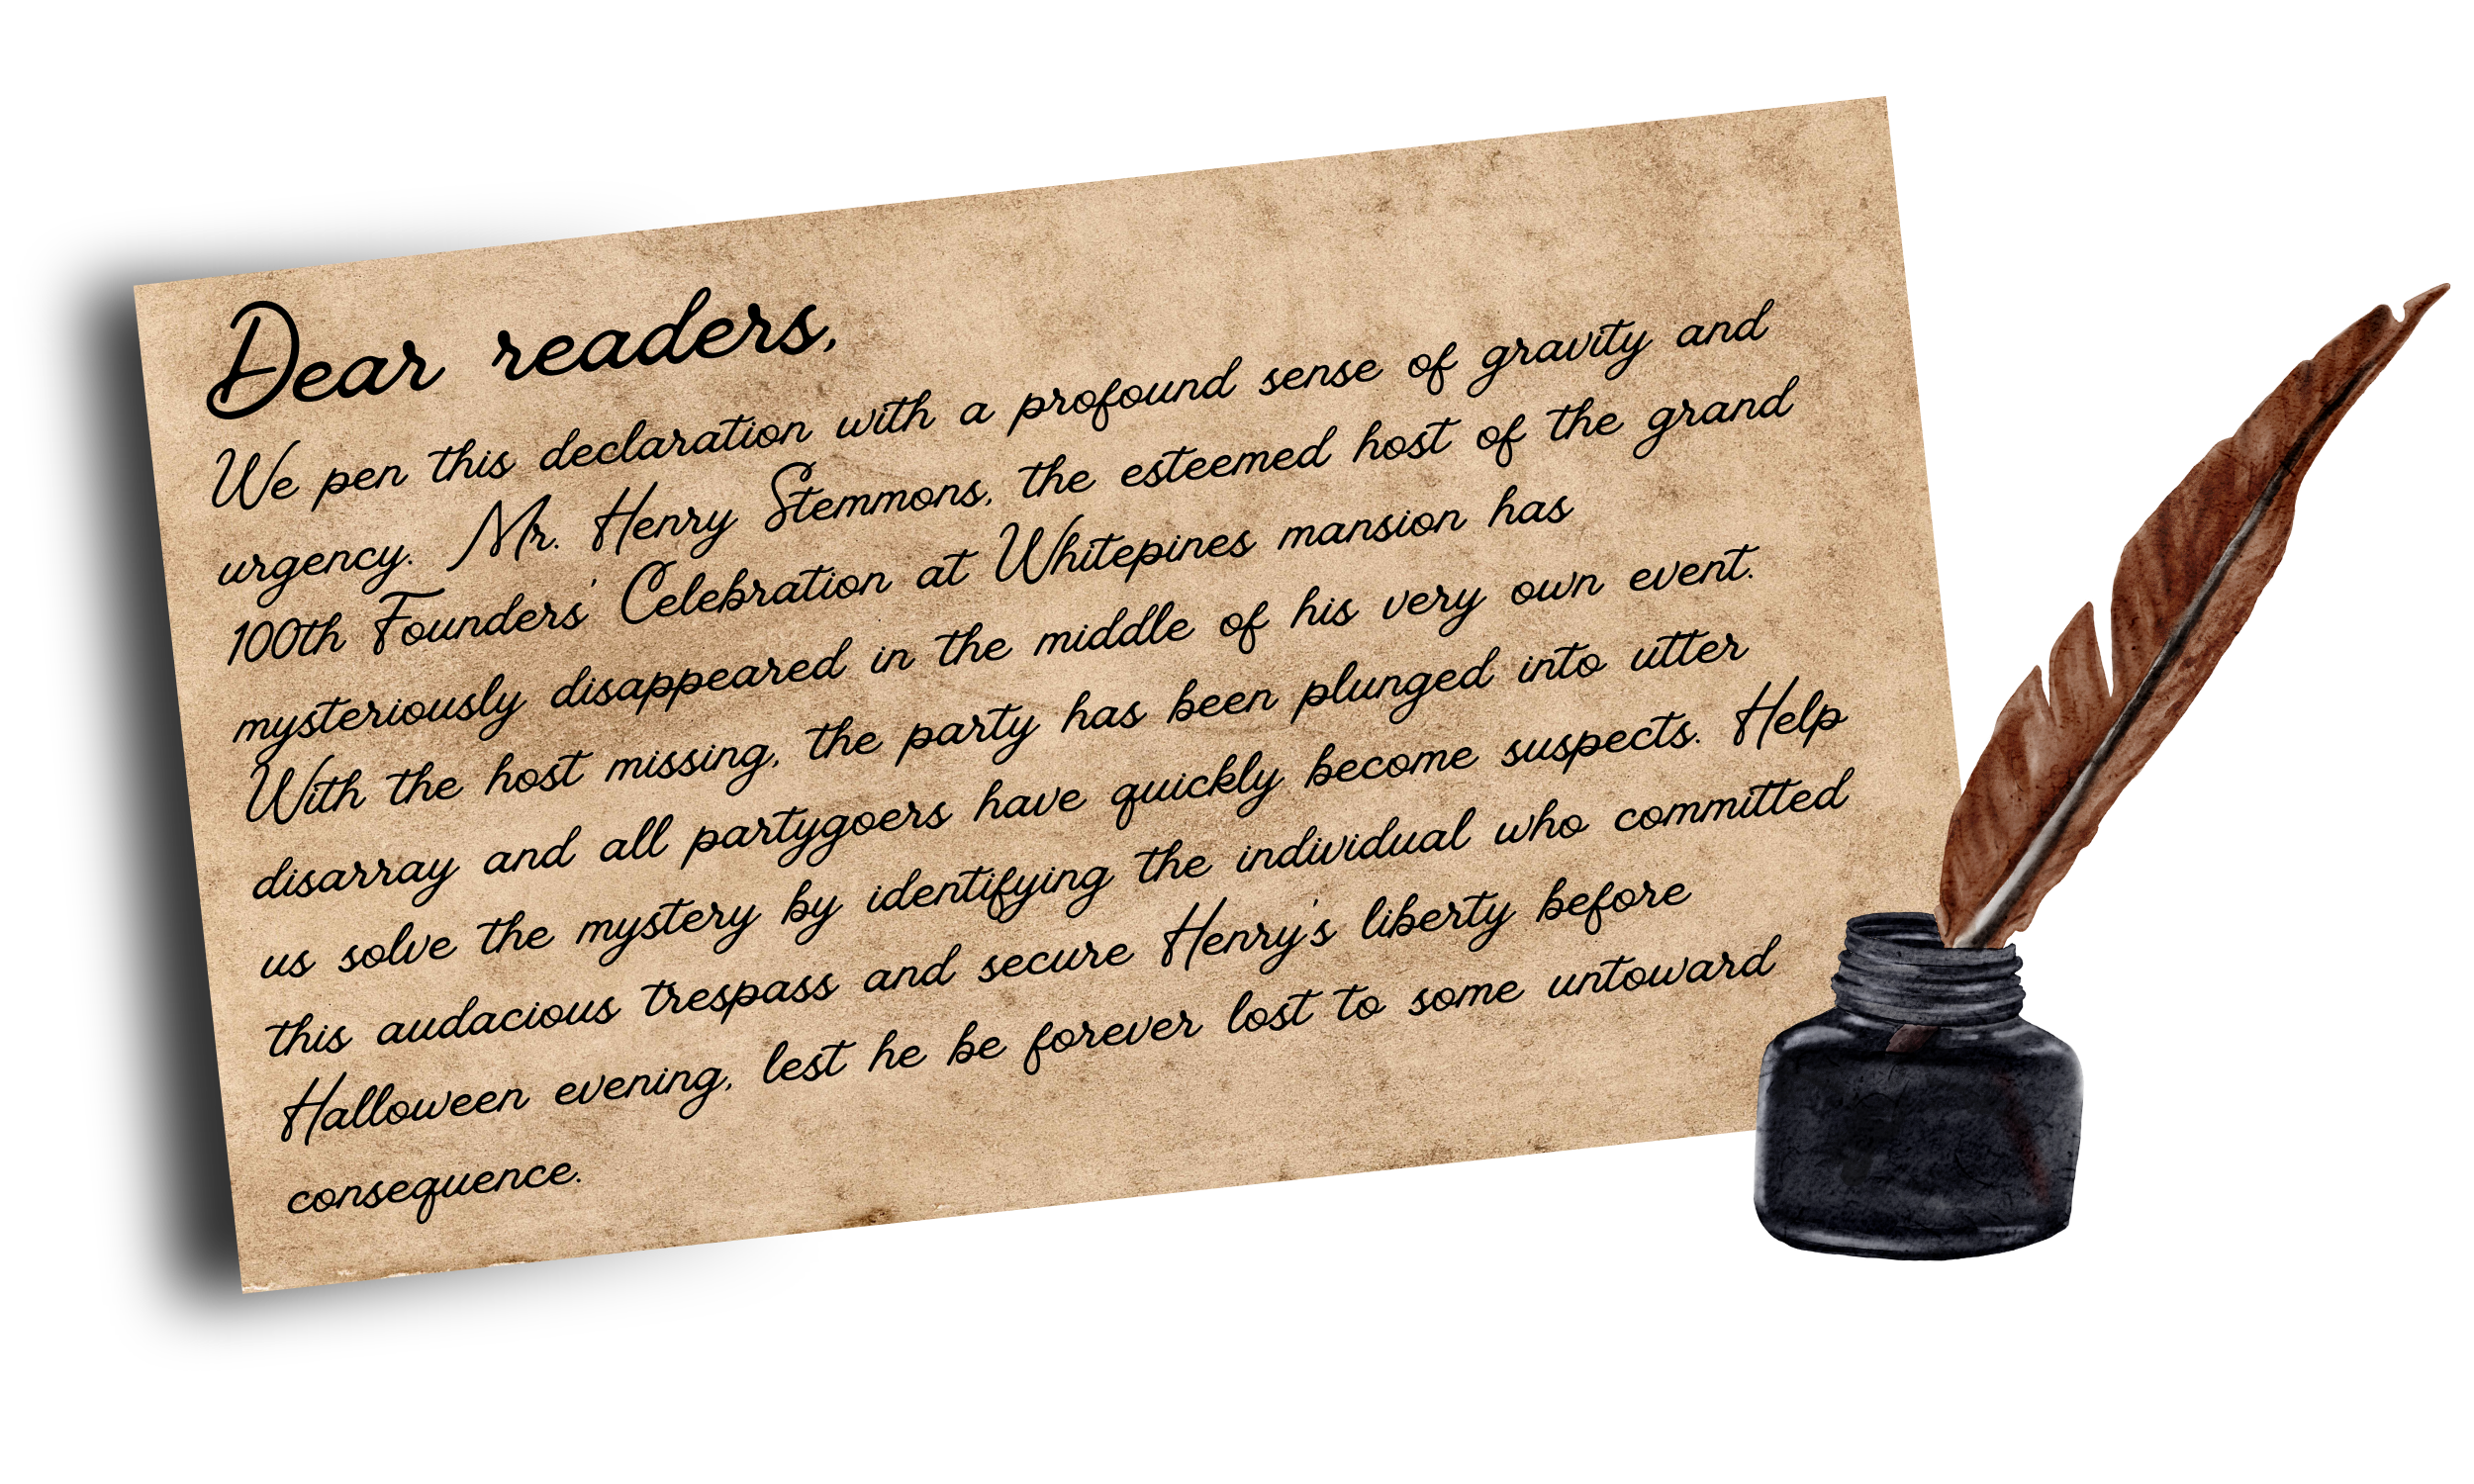 Dear readers,
We pen this declaration with a profound sense of gravity and
urgency. Mr. Henry Stemmons, the esteemed host of the grand
100th Founders' Celebration at Whitepines mansion has
mysteriously disappeared in the middle of his very own event.
With the host missing, the party has been plunged into utter
disarray and all partygoers have quickly become suspects. Help
us solve the mystery by identifying the individual who committed
this audacious trespass and secure Henry's liberty before
Halloween evening, lest he be forever lost to some untoward
consequence.